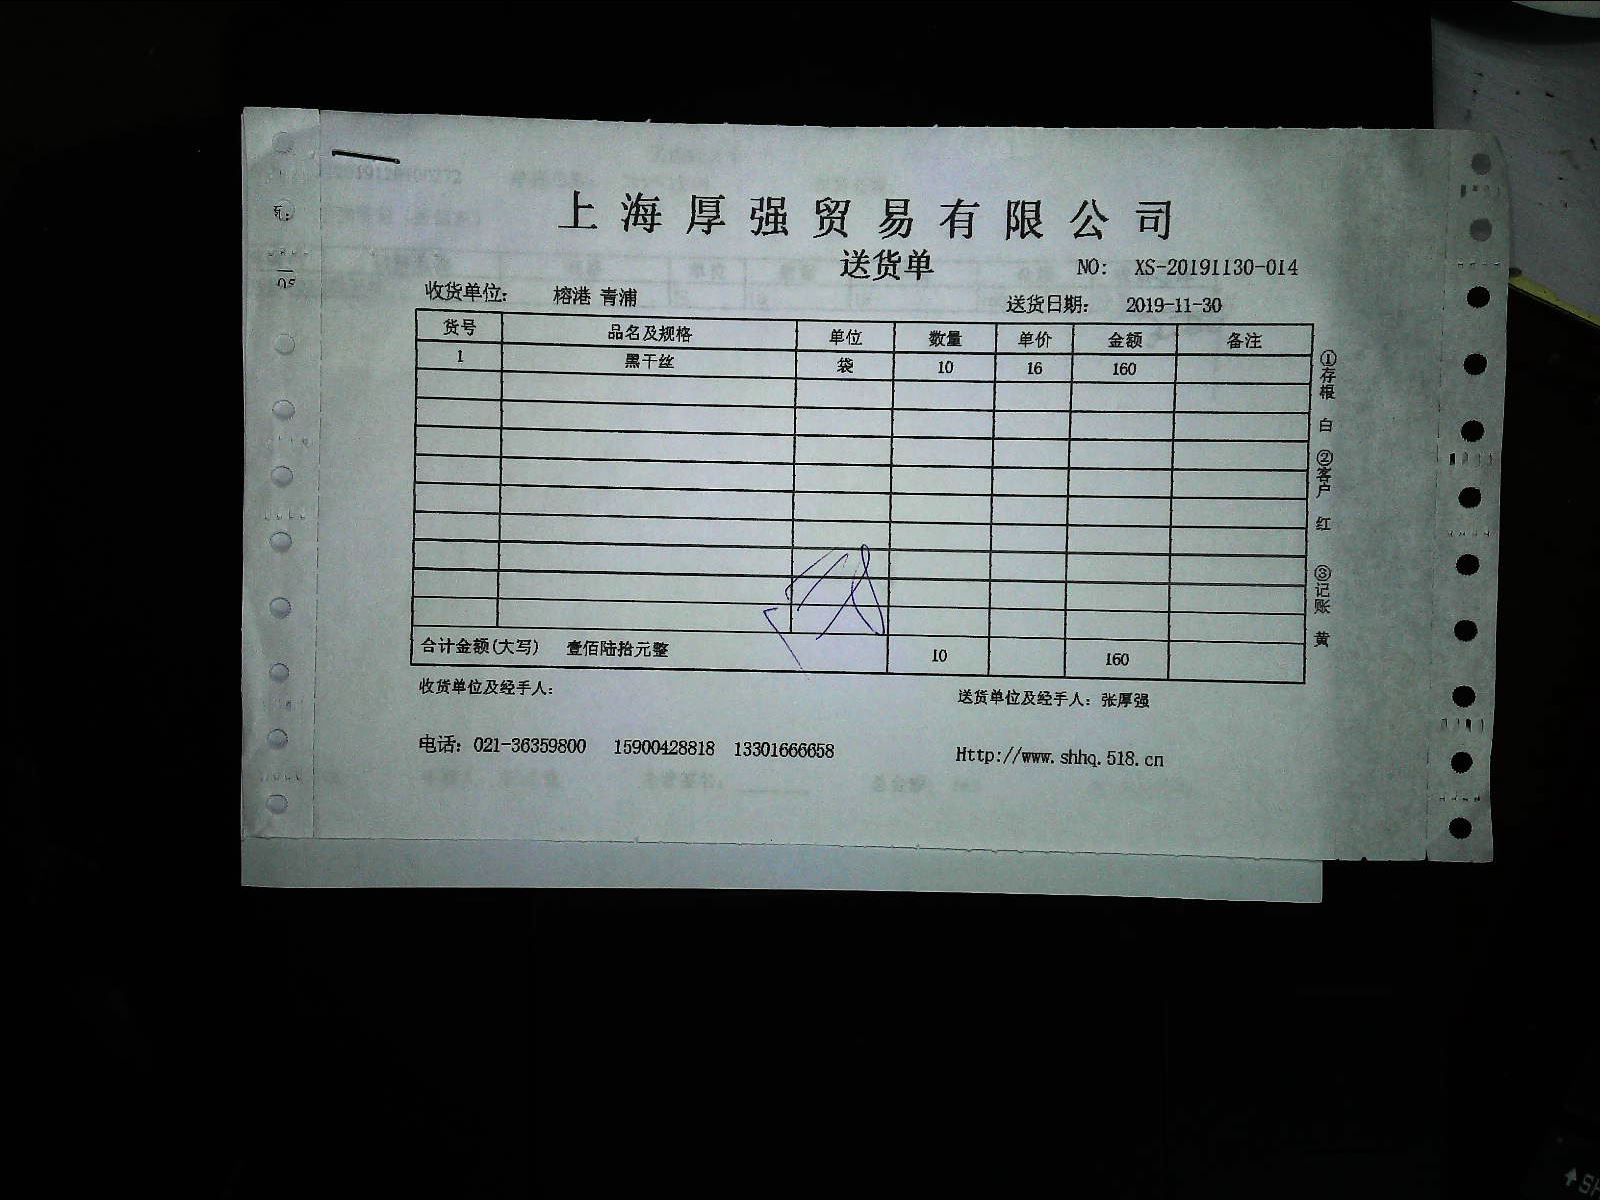 上海厚强贸易有限公司
送货单 NO: XS-20191130-014
收货单位: 榕港 青浦 送货日期: 2019-11-30
货号 品名及规格 单位 数量 单价 金额 备注
1 黑干丝 袋 10 16 160
合计金额(大写) 壹佰陆拾元整 10 160
收货单位及经手人: 送货单位及经手人: 张厚强
电话: 021-36359800 15900428818 13301666658 Http://www.shhq.518.cn
①存根 白 ②客户 红 ③记账 黄